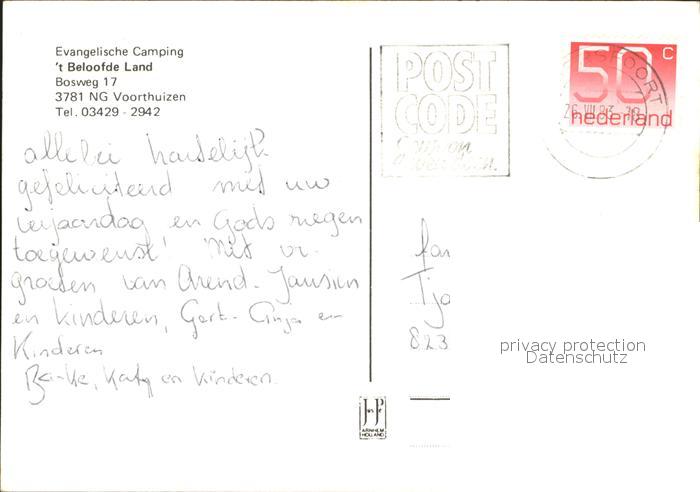 Evangelische Camping
't Beloofde Land
Bosweg 17
3781 NG Voorthuizen
Tel. 03429 - 2942
allebei hartelijk
gefeliciteerd met uw
verjaardag en Gods zegen
toegewenst! Met vr.
groeten van Arend-Jansien
en kinderen, Gert- Ginja en
Kinderen
Katy en kinderen.
POST
CODE
50 C
nederland
fam
Tja
823
privacy protection
Datenschutz
ARNHEM
HOLLAND